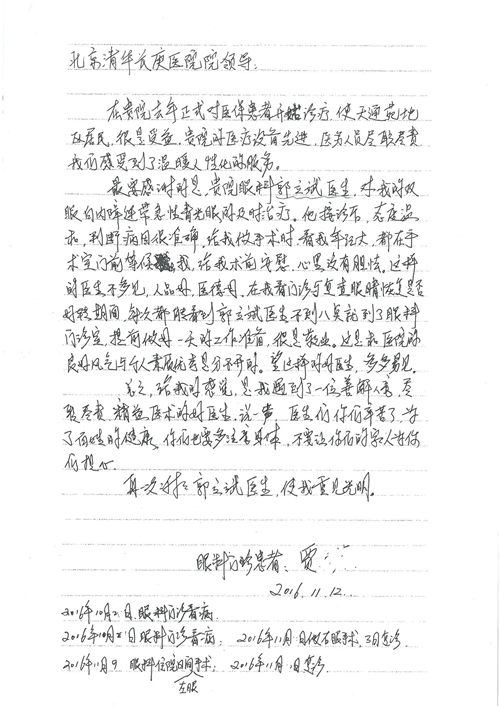 北京清华长庚医院院领导：
在贵院去年正式对医保患者开始诊疗，使天通苑地
区居民，很是受益，贵院的医疗设备先进，医务人员尽职尽责
我们感受到了温暖人性化的服务。
最要感谢的是，贵院眼科郭立斌医生，对我的双
眼白内障连带急性青光眼的及时治疗，他接诊市，态度温
和，判断病因很准确，给我做手术时，看我年纪大，都在手
术室门前等候我，给我术前安慰，心里没有胆怯。这样
的医生不多见，人品好，医德好，在我看门诊与复查眼睛恢复是否
好转期间，每次都能看到郭立斌医生不到八点就到了眼科
门诊室，提前做好一天的工作准备，很是敬业。这是和医院的
良好风气与个人素质优秀是分不开的。望这样的好医生，多多易见。
总之，给我的感觉，是我遇到了一位善解人意，尽
职尽责，精益医术的好医生，说一声，医生们你们辛苦了，为
了百姓的健康，你们也要多注意身体，不要让你们的家人为你
们担心。
再次谢谢郭立斌医生，使我重见光明。
眼科门诊患者：贾
2016.11.12
2016年10月2日眼科门诊看病
2016年10月21日眼科门诊看病； 2016年11月1日做右眼手术，3日复诊
2016年11月9 眼科住院日间手术； 2016年11月1日复诊
左眼